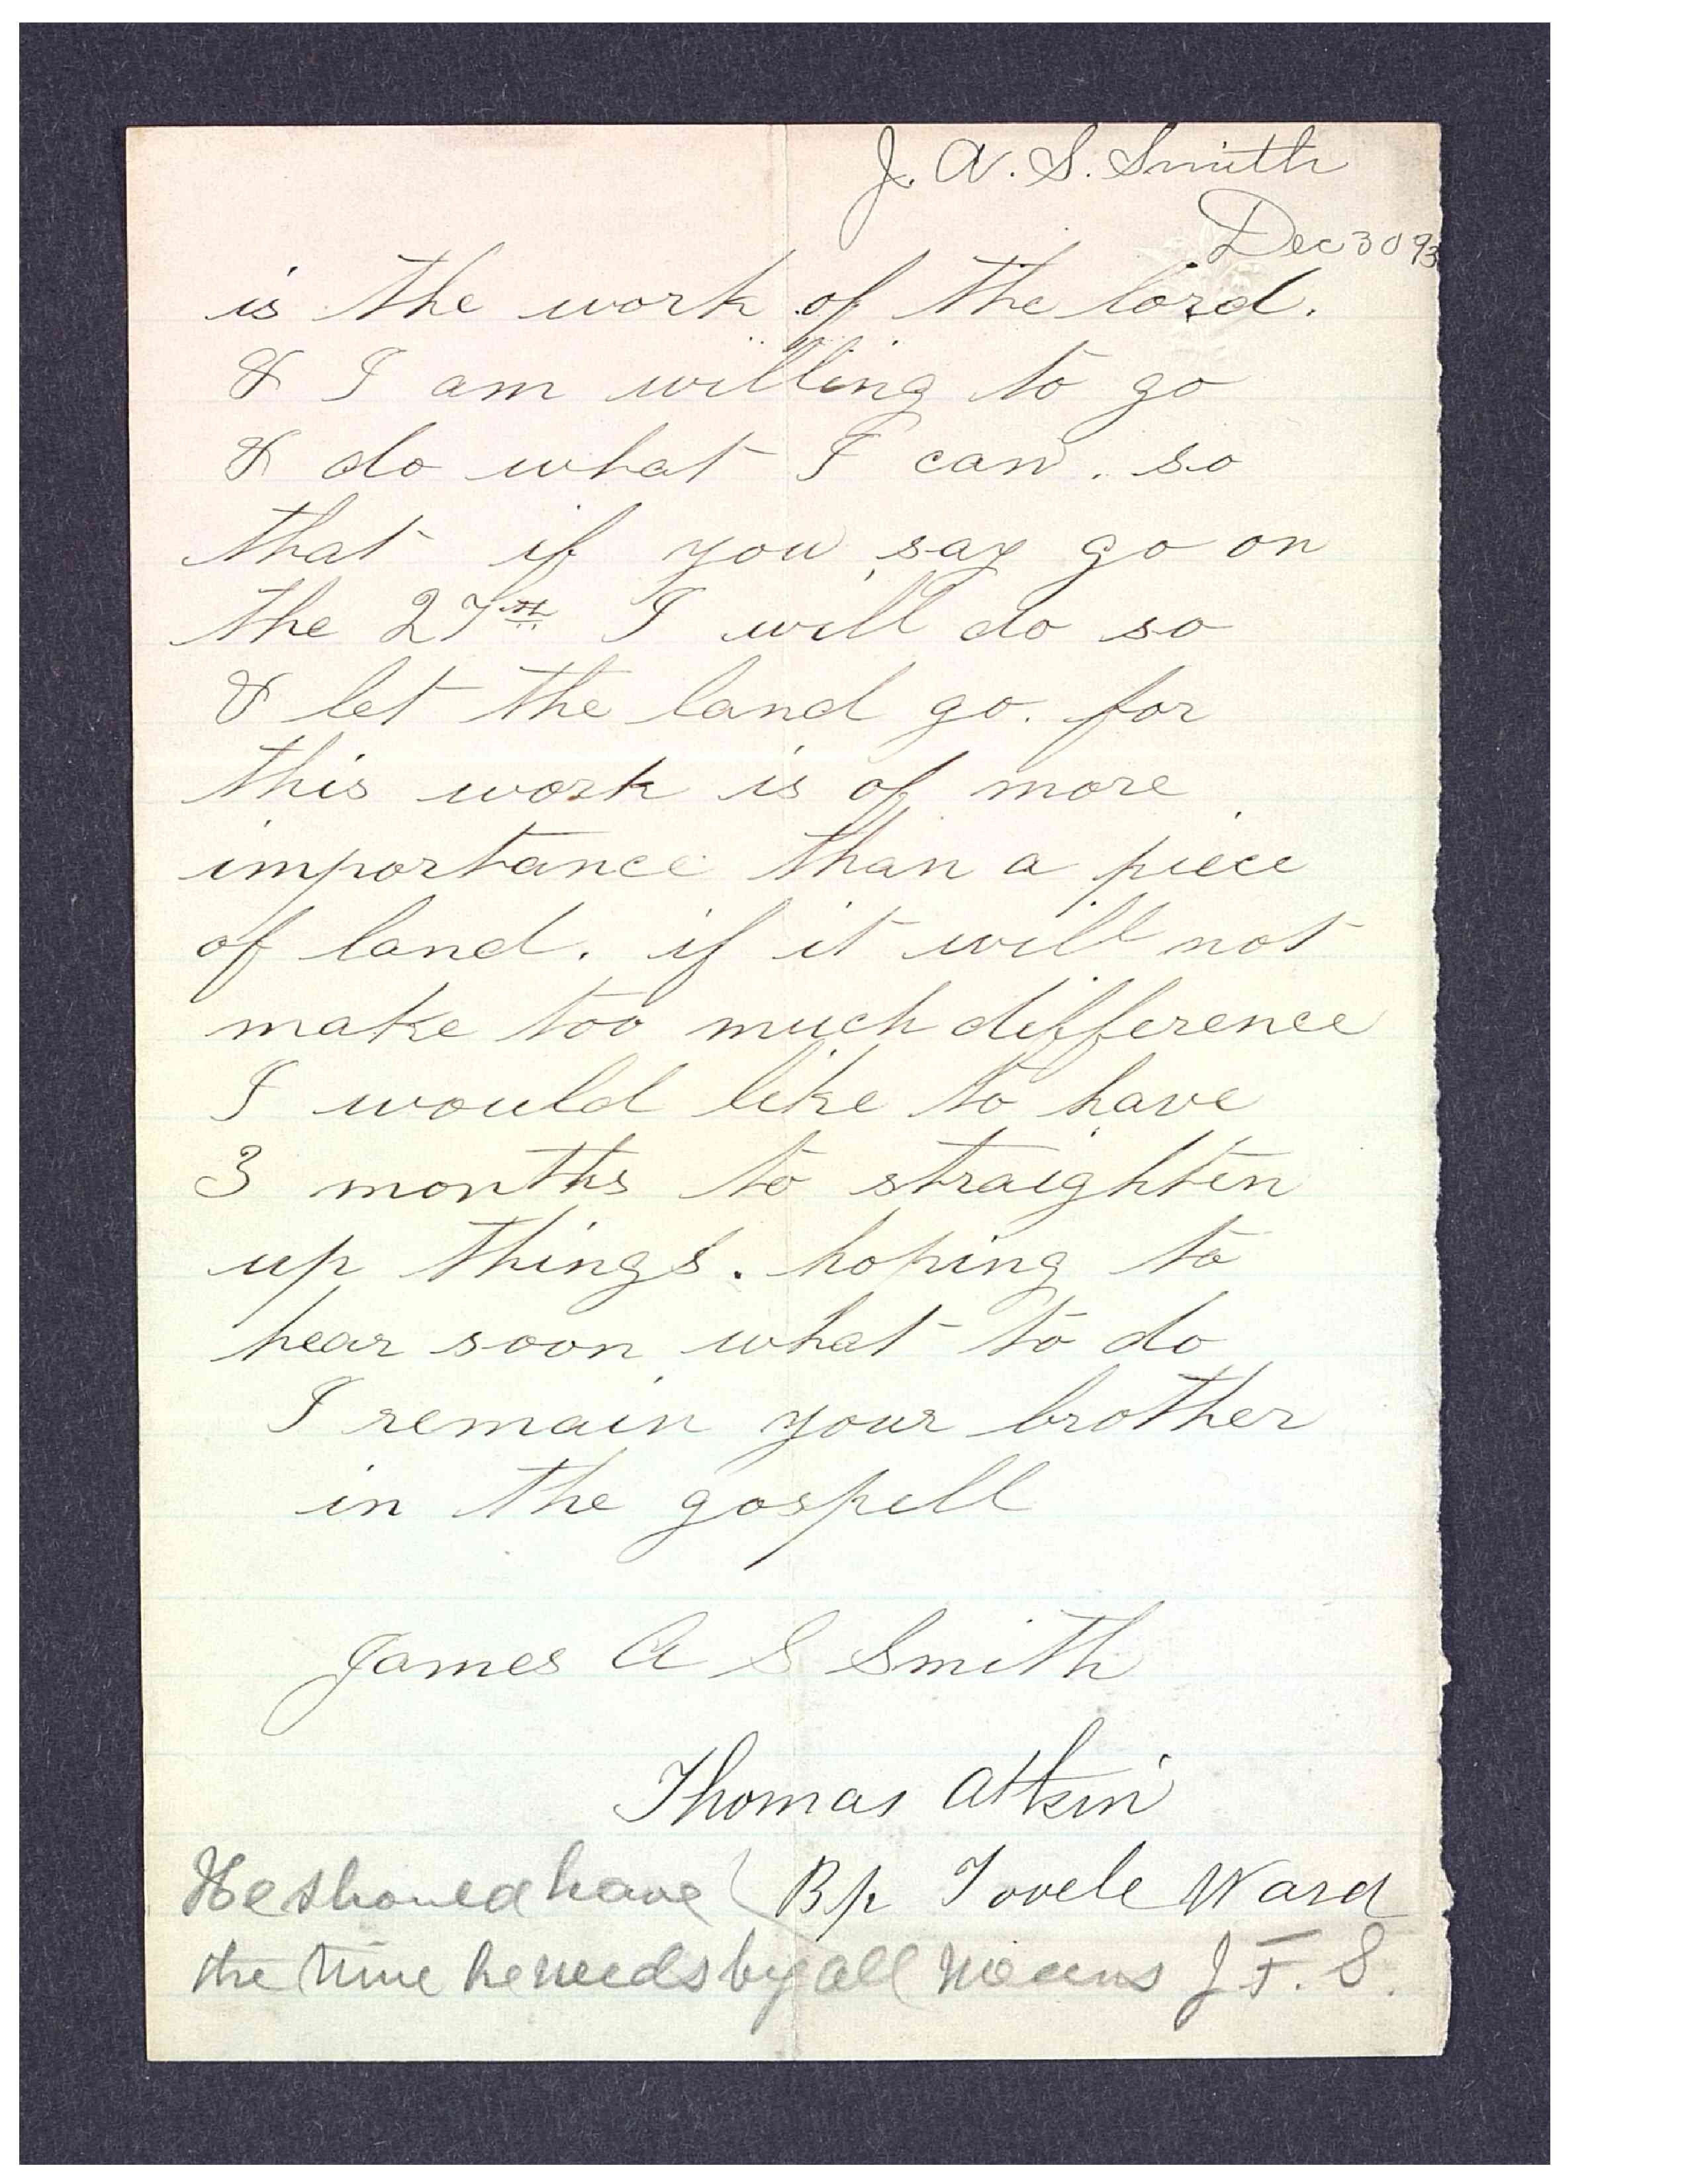 J. A. S. Smith
Dec 30 93
is the work of the lord.
& I am willing to go
& do what I can. so
that if you say go on
the 27th I will do so
& let the land go. for
this work is of more
importance than a piece
of land. if it will not
make too much difference
I would like to have
3 months to straighten
up things. hoping to
hear soon what to do
I remain your brother
in the gospell
James A S Smith
Thomas Atkin
Bp Tooele Ward
He should have
the time he needs by all means J. F. S.